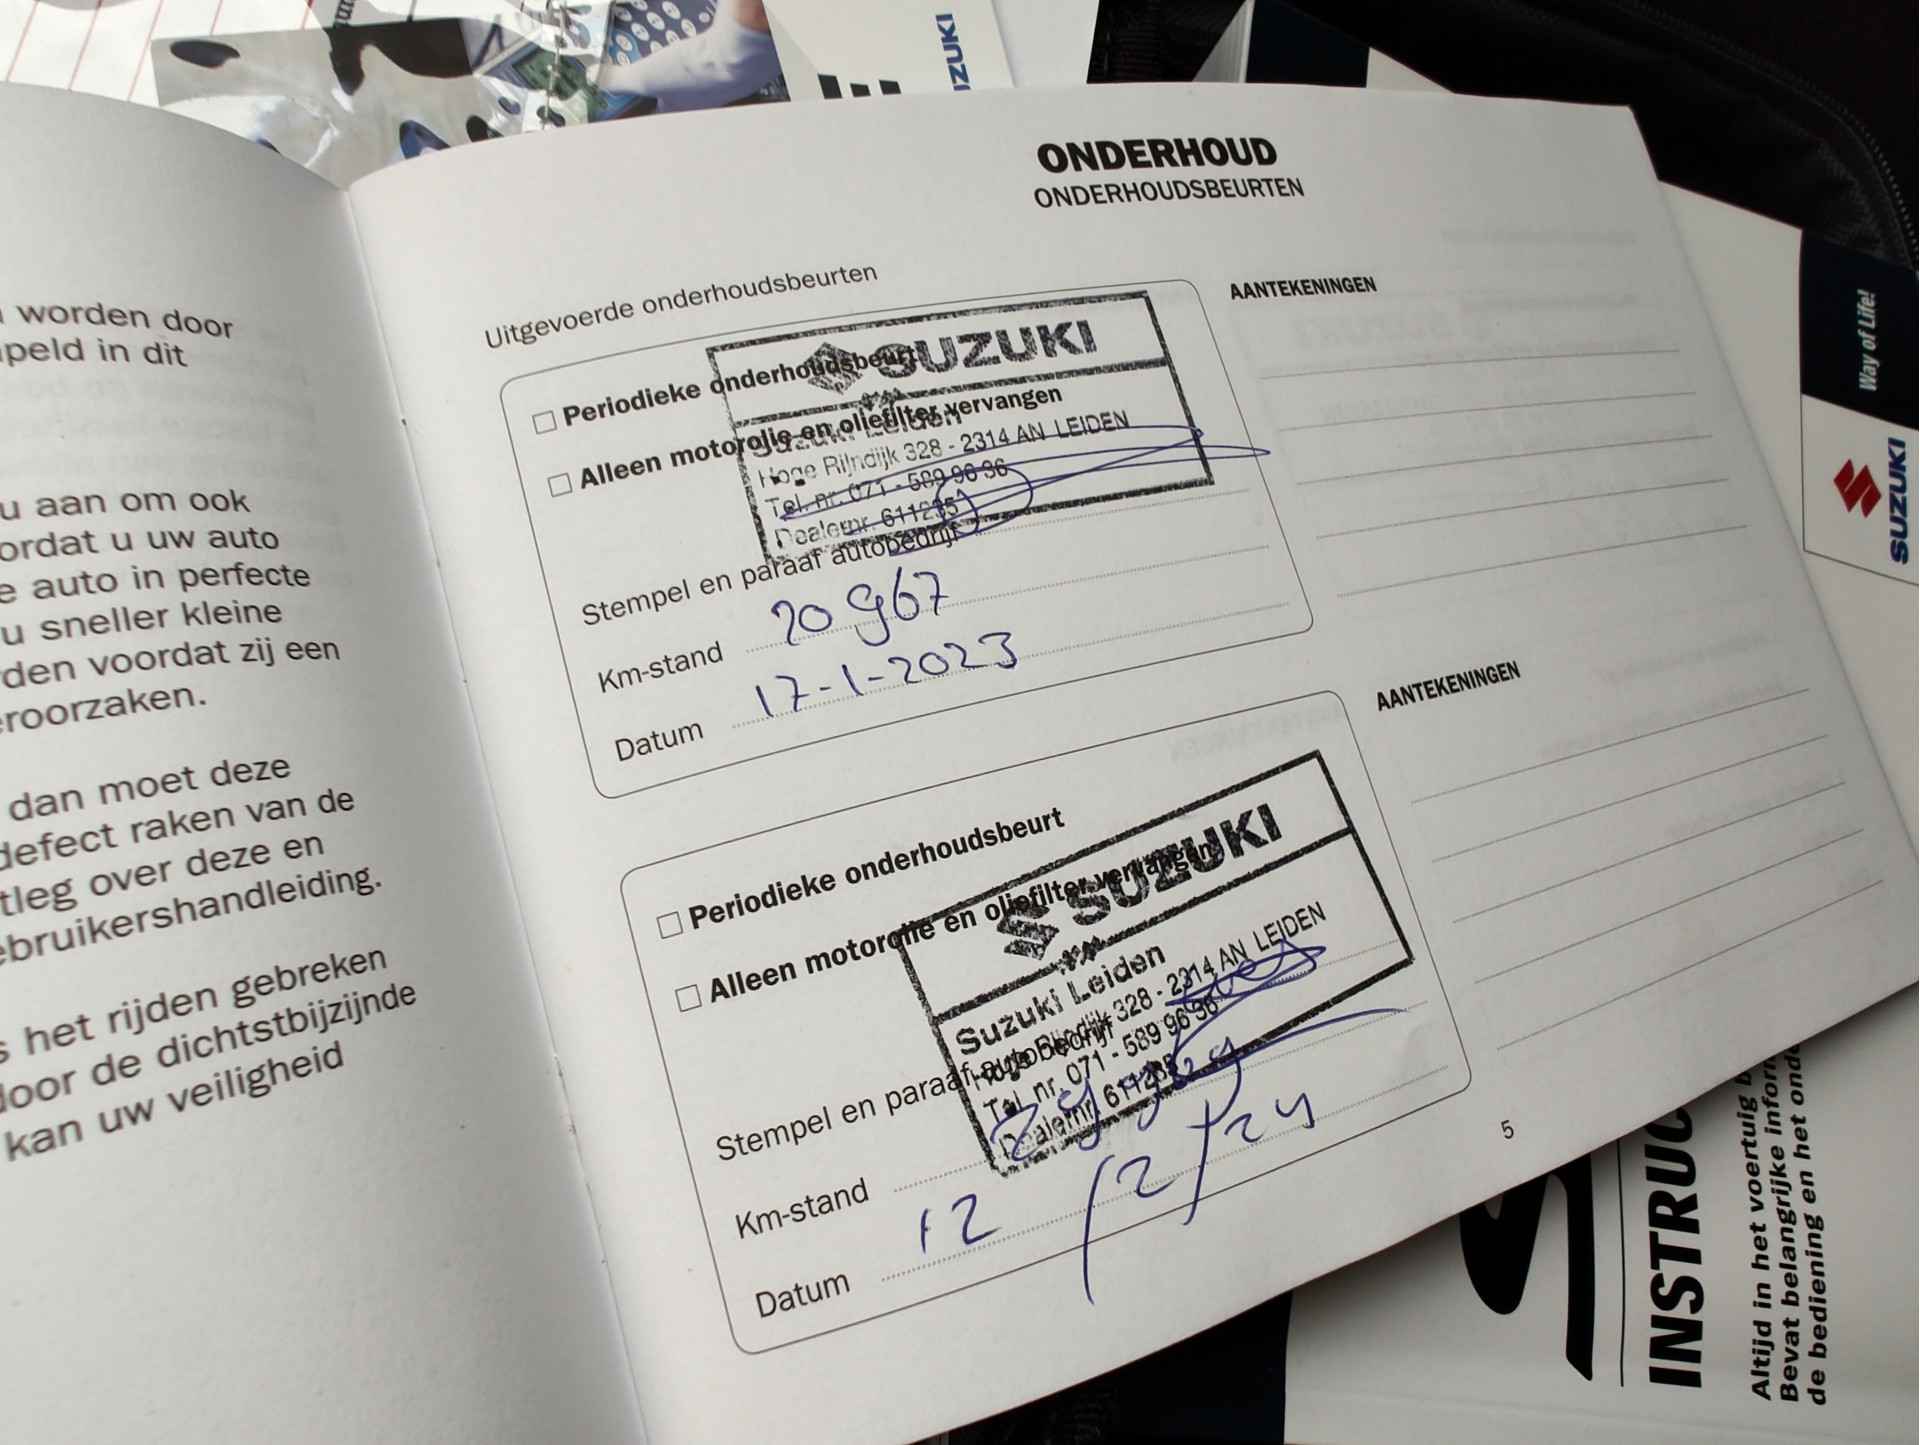 SUZUKI
worden door
peld in dit
u aan om ook
ordat u uw auto
e auto in perfecte
u sneller kleine
den voordat zij een
eroorzaken.
dan moet deze
defect raken van de
tleg over deze en
ebruikershandleiding.
s het rijden gebreken
door de dichtstbijzijnde
kan uw veiligheid
ONDERHOUD
ONDERHOUDSBEURTEN
Uitgevoerde onderhoudsbeurten
Periodieke onderhoudsbeurt
Alleen motorolie en oliefilter vervangen
SUZUKI
Suzuki Leiden
Hoge Rijndijk 328 - 2314 AN LEIDEN
Tel. nr. 071 - 589 96 36
Dealernr. 611235
Stempel en paraaf autobedrijf
Km-stand 20 967
Datum 17-1-2023
AANTEKENINGEN
Periodieke onderhoudsbeurt
Alleen motorolie en oliefilter vervangen
SUZUKI
Suzuki Leiden
Hoge Rijndijk 328 - 2314 AN LEIDEN
Tel. nr. 071 - 589 96 36
Dealernr. 611235
Stempel en paraaf autobedrijf
Km-stand
Datum 12/2/24
AANTEKENINGEN
5
Way of Life!
SUZUKI
INSTRUC
Altijd in het voertuig b
Bevat belangrijke inform
de bediening en het onde